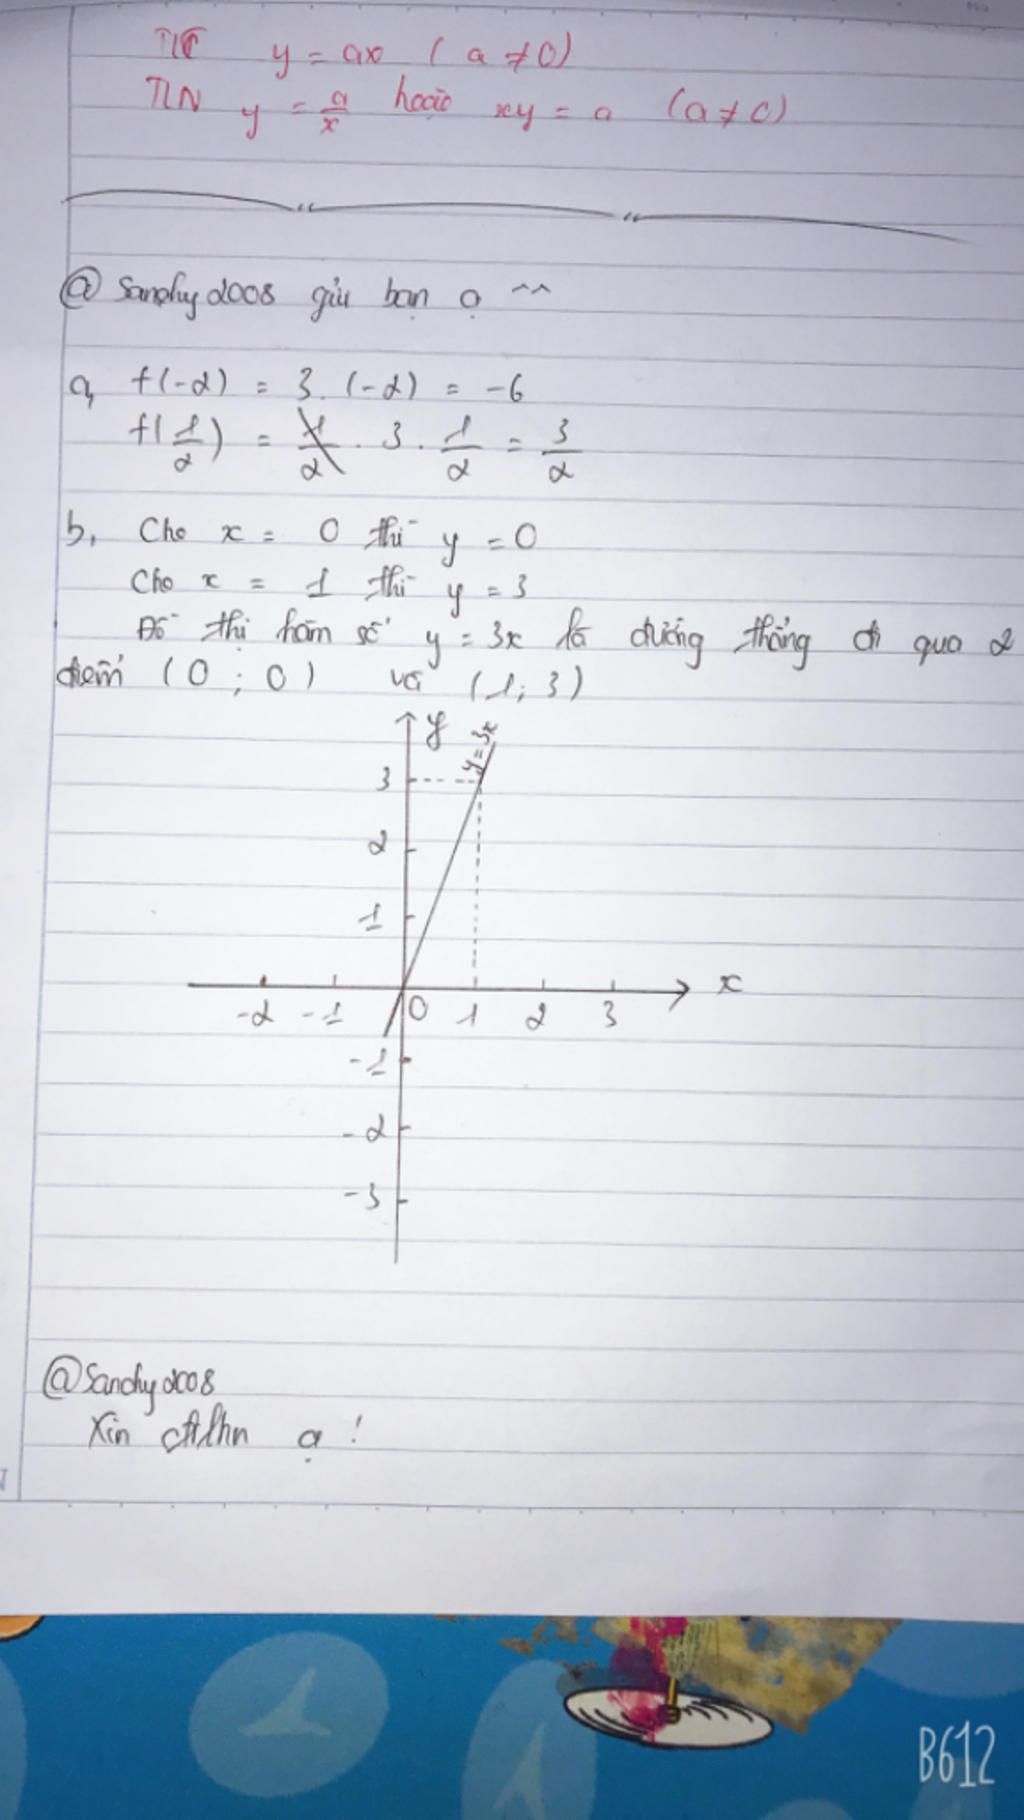 TLT y = ax ( a ≠ 0)
TLN y = a/x hoặc xy = a (a ≠ 0)
@ Sanchy2008 gửi bạn ạ ^^
a, f(-2) = 3. (-2) = -6
f(1/2) = 3 . 1/2 = 3/2
b, Cho x = 0 thì y = 0
Cho x = 1 thì y = 3
Đồ thị hàm số y = 3x là đường thẳng đi qua 2
điểm (0 ; 0) và (1; 3)
y
y = 3x
3
2
1
x
-2 -1 0 1 2 3
-1
-2
-3
@Sanchy2008
Xin ctlhn ạ !
B612